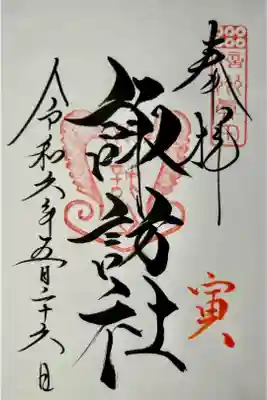 奉拝
寅
諏訪社
令和六年五月二十六日